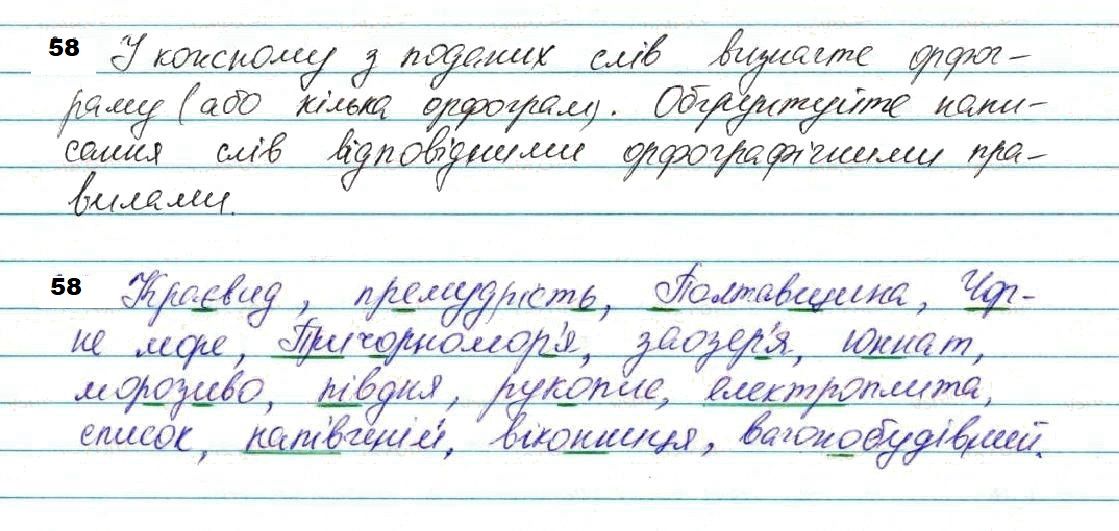 58 У кожному з поданих слів визначте орфог-
раму (або кілька орфограм). Обґрунтуйте напи-
сання слів відповідними орфографічними пра-
вилами.
58 Краєвид, премудрість, Полтавщина, Чор-
не море, Причорномор'я, заозер'я, юннат,
морозиво, півдня, рукопис, електроплита,
список, напівтіні, віконниця, вагонобудівний.